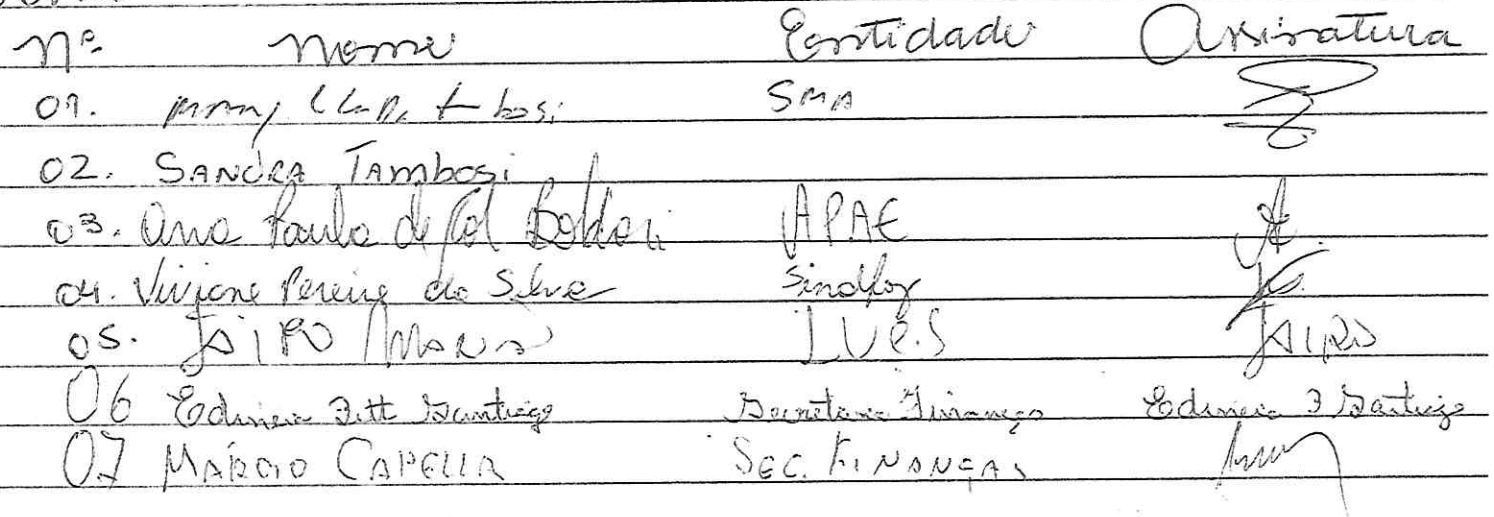 Nº Nome Entidade Assinatura
01. SMA
02. SANDRA TAMBOSI
03. Ana Paula de Col APAE
04. Viviane Pereira da Silva Sindfoz
05. JAIRO MARIA JAIRO
06 Edineia Fett Santiago Secretaria Finanças Edineia F Santiago
07 MÁRCIO CAPELLA SEC. FINANÇAS